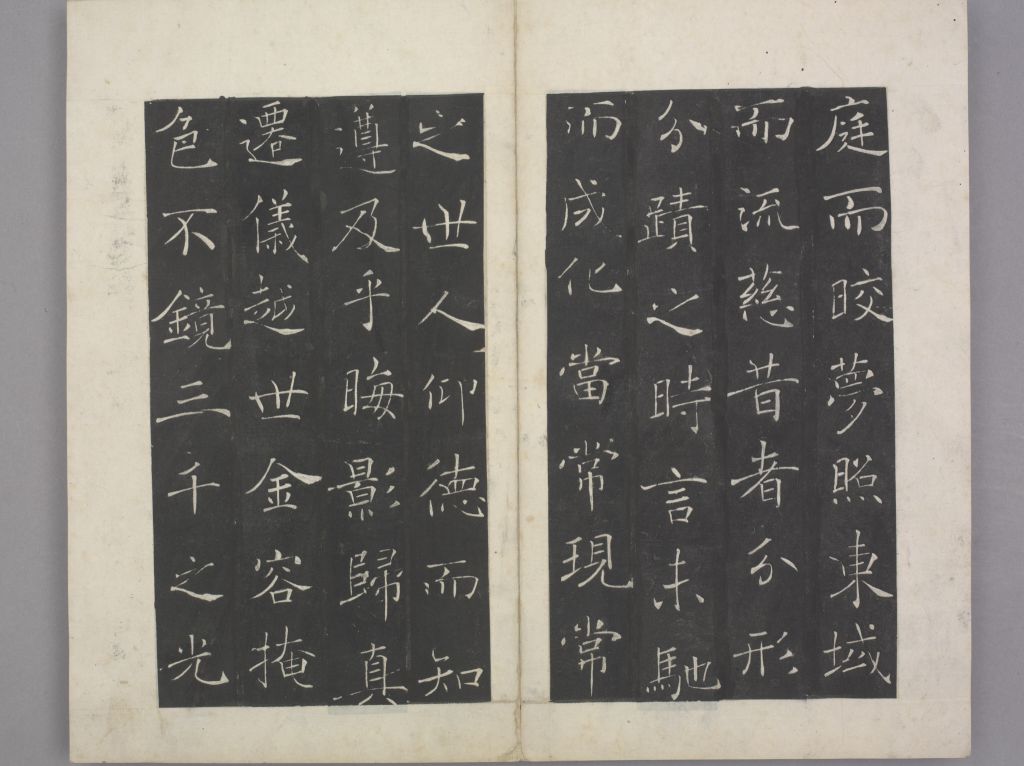 庭而皎夢照東域
而流慈昔者分形
分蹟之時言未馳
而成化當常現常
之世人仰德而知
遵及乎晦影歸真
遷儀越世金容掩
色不鏡三千之光